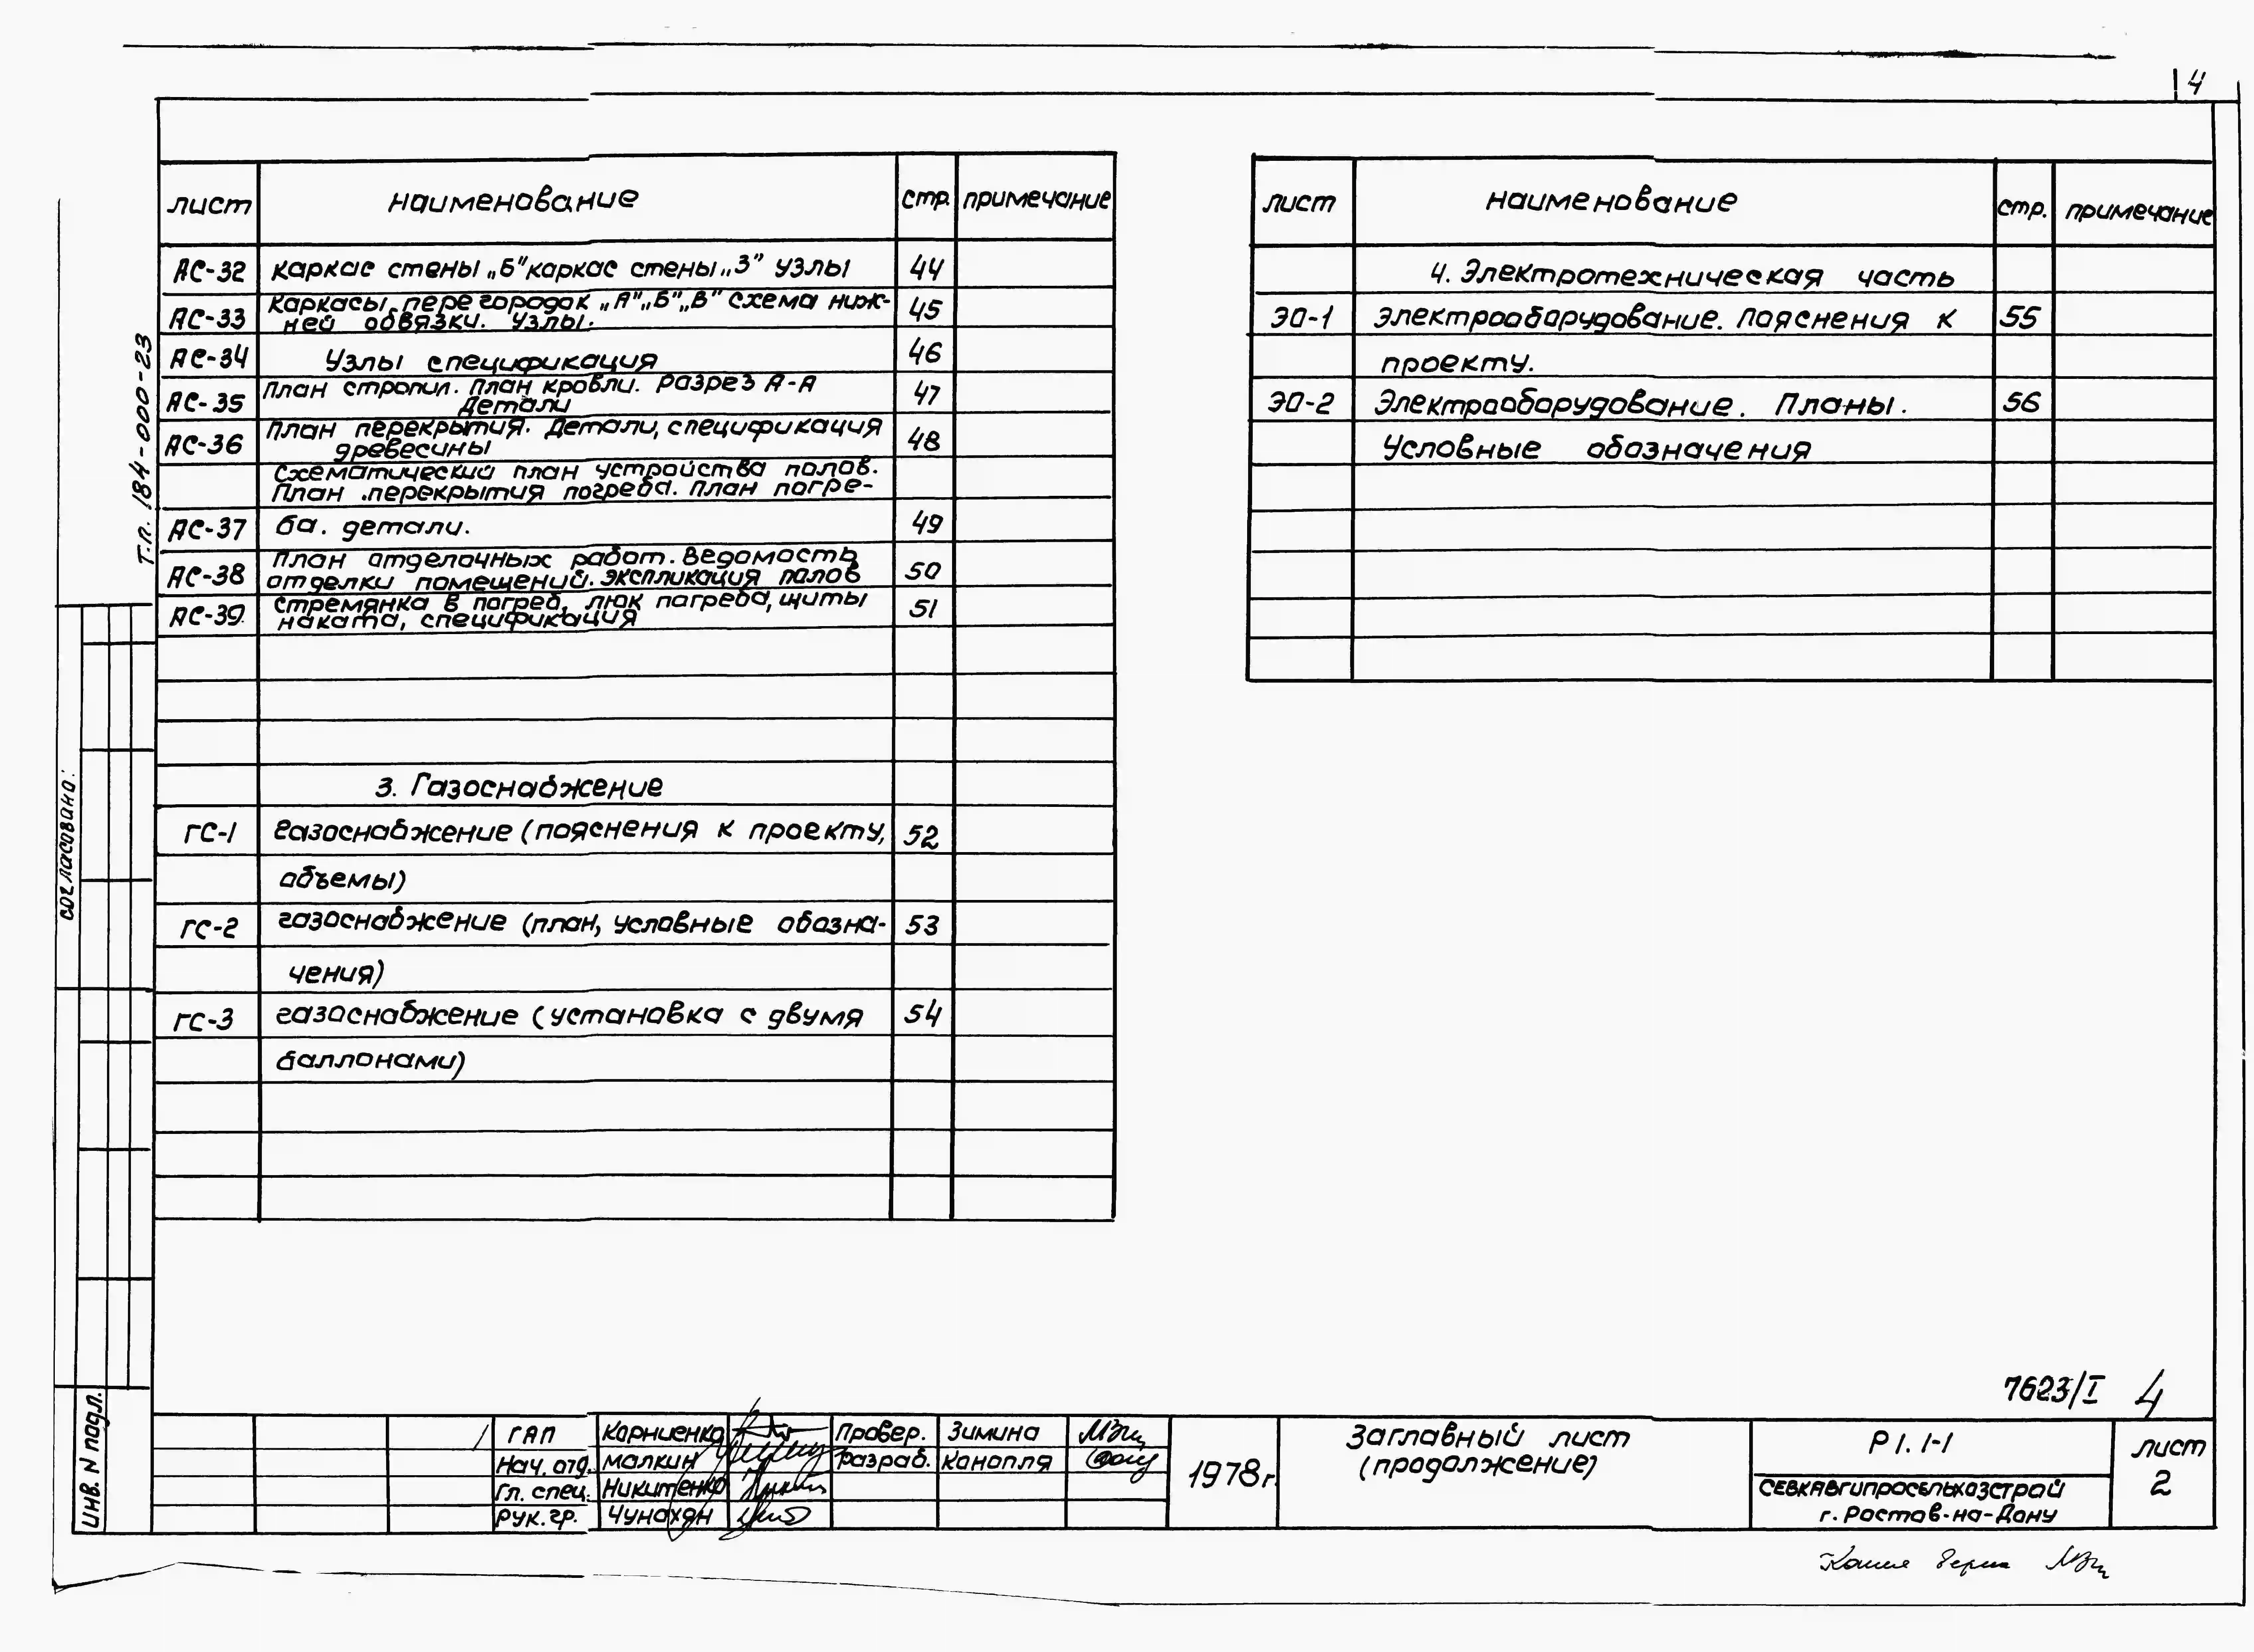 4
лист наименование стр. примечание
АС-32 каркас стены „Б" каркас стены „З" узлы 44
АС-33 Каркасы перегородок „А" „Б" „В" схема ниж- 45
ней обвязки. Узлы.
АС-34 Узлы спецификация 46
АС-35 План стропил. План кровли. Разрез А-А 47
Детали
АС-36 План перекрытия. Детали, спецификация 48
древесины
Схематический план устройства полов.
План перекрытия погреба. План погре-
АС-37 ба. детали. 49
АС-38 План отделочных работ. Ведомость 50
отделки помещений. Экспликация полов
АС-39 Стремянка в погреб, люк погреба, щиты 51
наката, спецификация
3. Газоснабжение
ГС-1 Газоснабжение (пояснения к проекту, 52
объемы)
ГС-2 газоснабжение (план, условные обозна- 53
чения)
ГС-3 газоснабжение (установка с двумя 54
баллонами)
лист наименование стр. примечание
4. Электротехническая часть
ЭО-1 Электрооборудование. Пояснения к 55
проекту.
ЭО-2 Электрооборудование. Планы. 56
Условные обозначения
Т.п. 184-000-23
согласовано:
ИНВ. N подл.
7623/I 4
ГАП Корниенко Провер. Зимина
Нач. отд. Малкин Разраб. Конопля
Гл. спец. Никитенко
Рук. гр. Чунахян
1978г.
Заглавный лист
(продолжение)
Р1. 1-1
СЕВКАВГИПРОСЕЛЬХОЗСТРОЙ
г. Ростов-на-Дону
лист
2
Копия верна